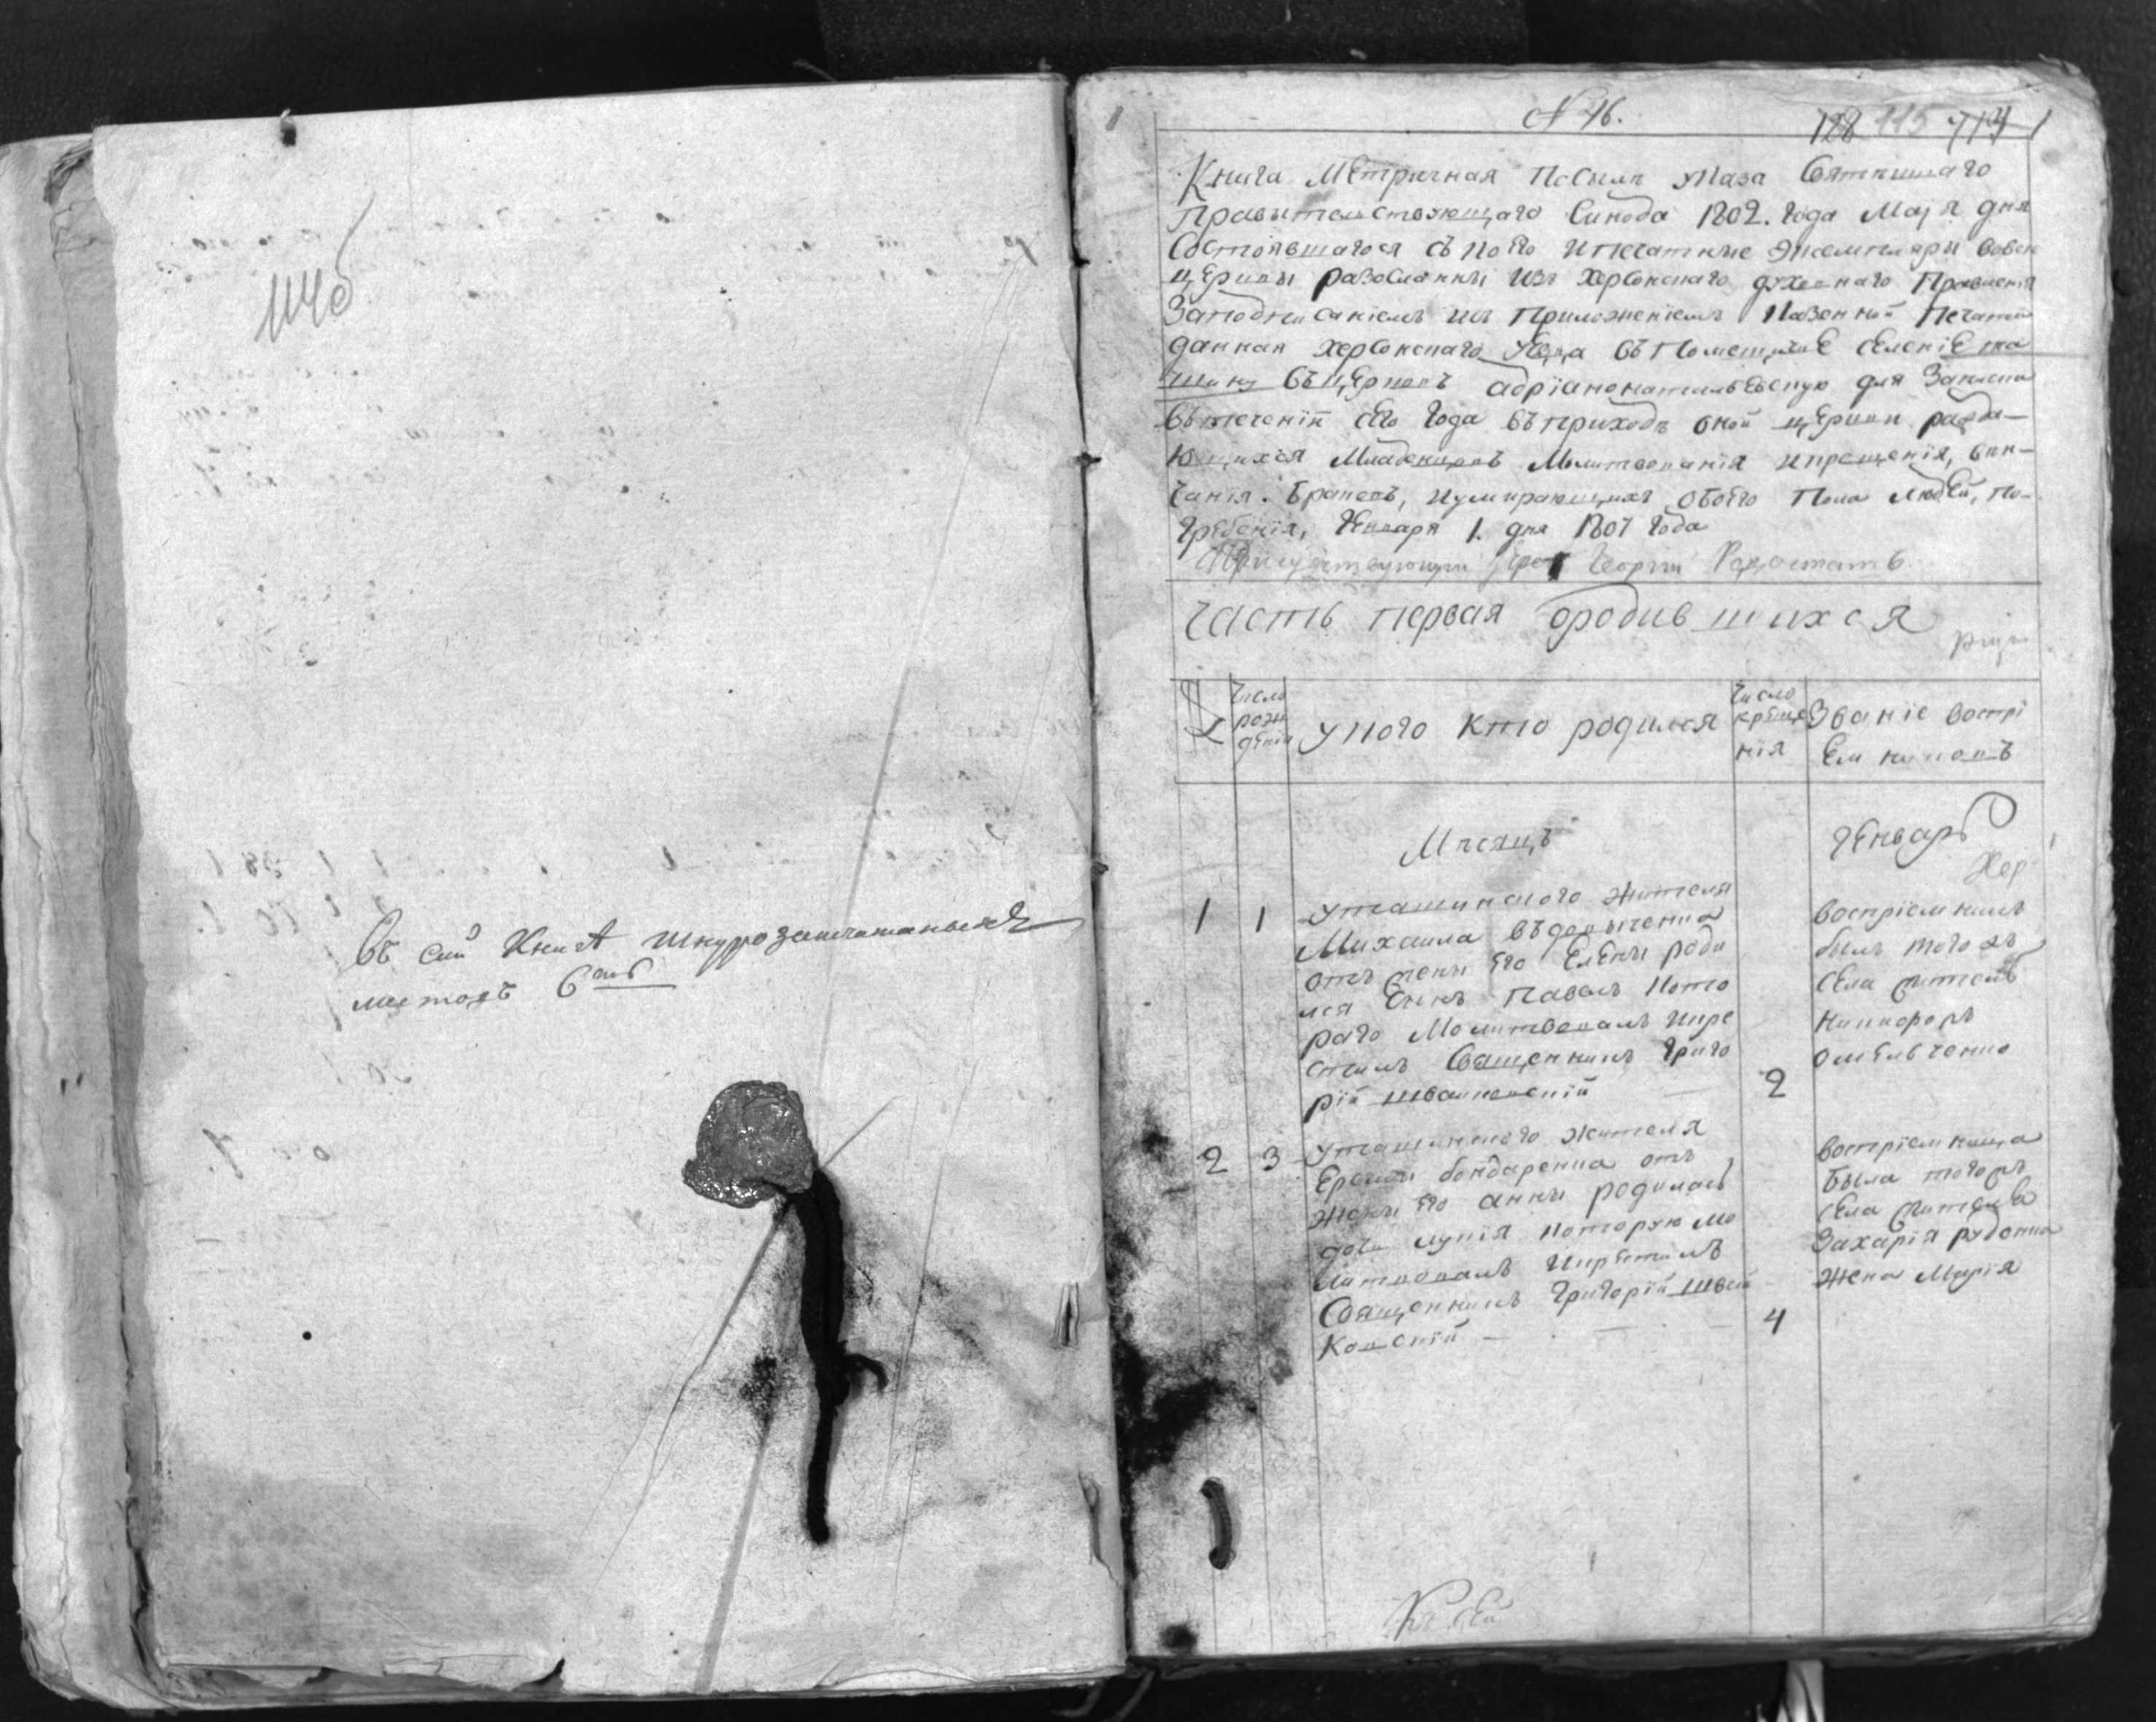 Въ сей Книгѣ шнурозапечатанныхъ
листовъ 6ть
N 16.
128 115 714
Книга Метричная Посилѣ указа Святѣйшаго
Правительствующаго Синода 1802. года Маія дня
Состоявшагося съ коего и печатные экземпляри вовсѣ
церкви разосланны изъ херсонскаго духовнаго Правленія
Заподписаніемъ исъ Приложеніемъ Казенной Печати
данная херсонскаго уезда въ Помещичье селеніе та
шину въ церковъ для Записки
въ теченіи сего года въ приходѣ оной церкви ражда-
ющихся Младенцовъ Молитвованія икрещенія, вѣн-
чанія. браковъ, иумирающихъ обоего Пола людей, По-
гребенія, Генваря 1. дня 1807 года
Присутствующий Георгий
Часть первая ородившихся
Число рожденія
укого кто родился
Число крещенія
Званіе воспріемниковъ
Мѣсяцъ
Генварь
1 1
уташинского жителя
Михаила
отъ жены его Елены роди
лся сынъ Павелъ кото
раго Молитвовалъ икре
стилъ Священникъ Григо
рій
2
воспріемникъ
былъ тогожъ
села житель
Никифоръ
2 3
уташинского жителя
бондаренка отъ
жены его анны родилась
дочь лукія которую мо
литвовалъ икрестилъ
Священникъ Григорій
ковский
4
воспріемница
была тогожъ
села жителя
Захарія
жена Марія